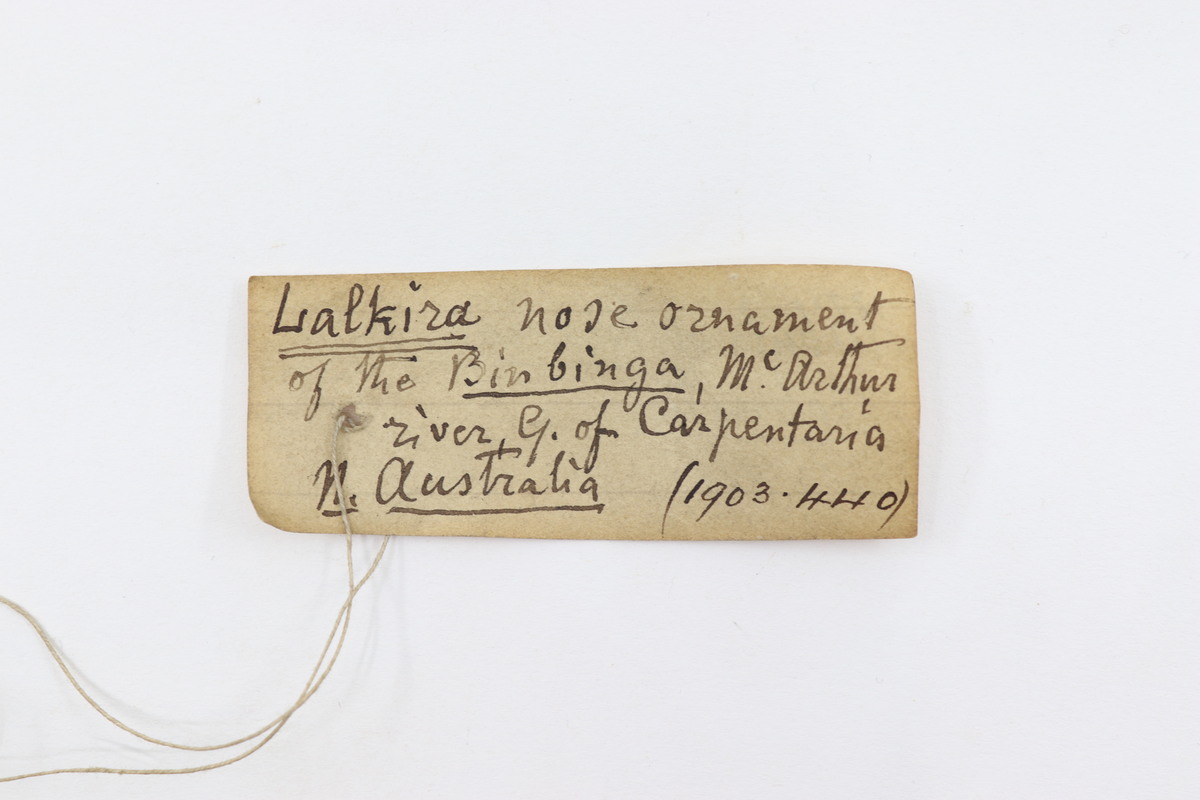 Lalkira nose ornament
of the Binbinga, Mc. Arthur
river, G. of Carpentaria
N. Australia (1903.440)